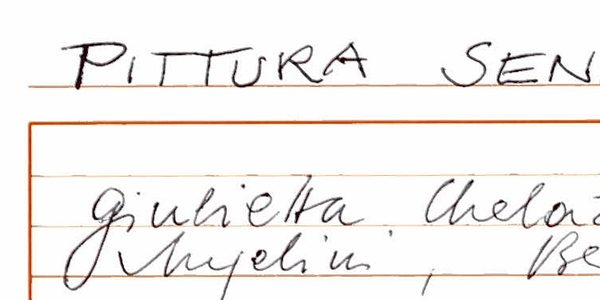 PITTURA SEN
Giulietta Chelaz
Angelini, Be